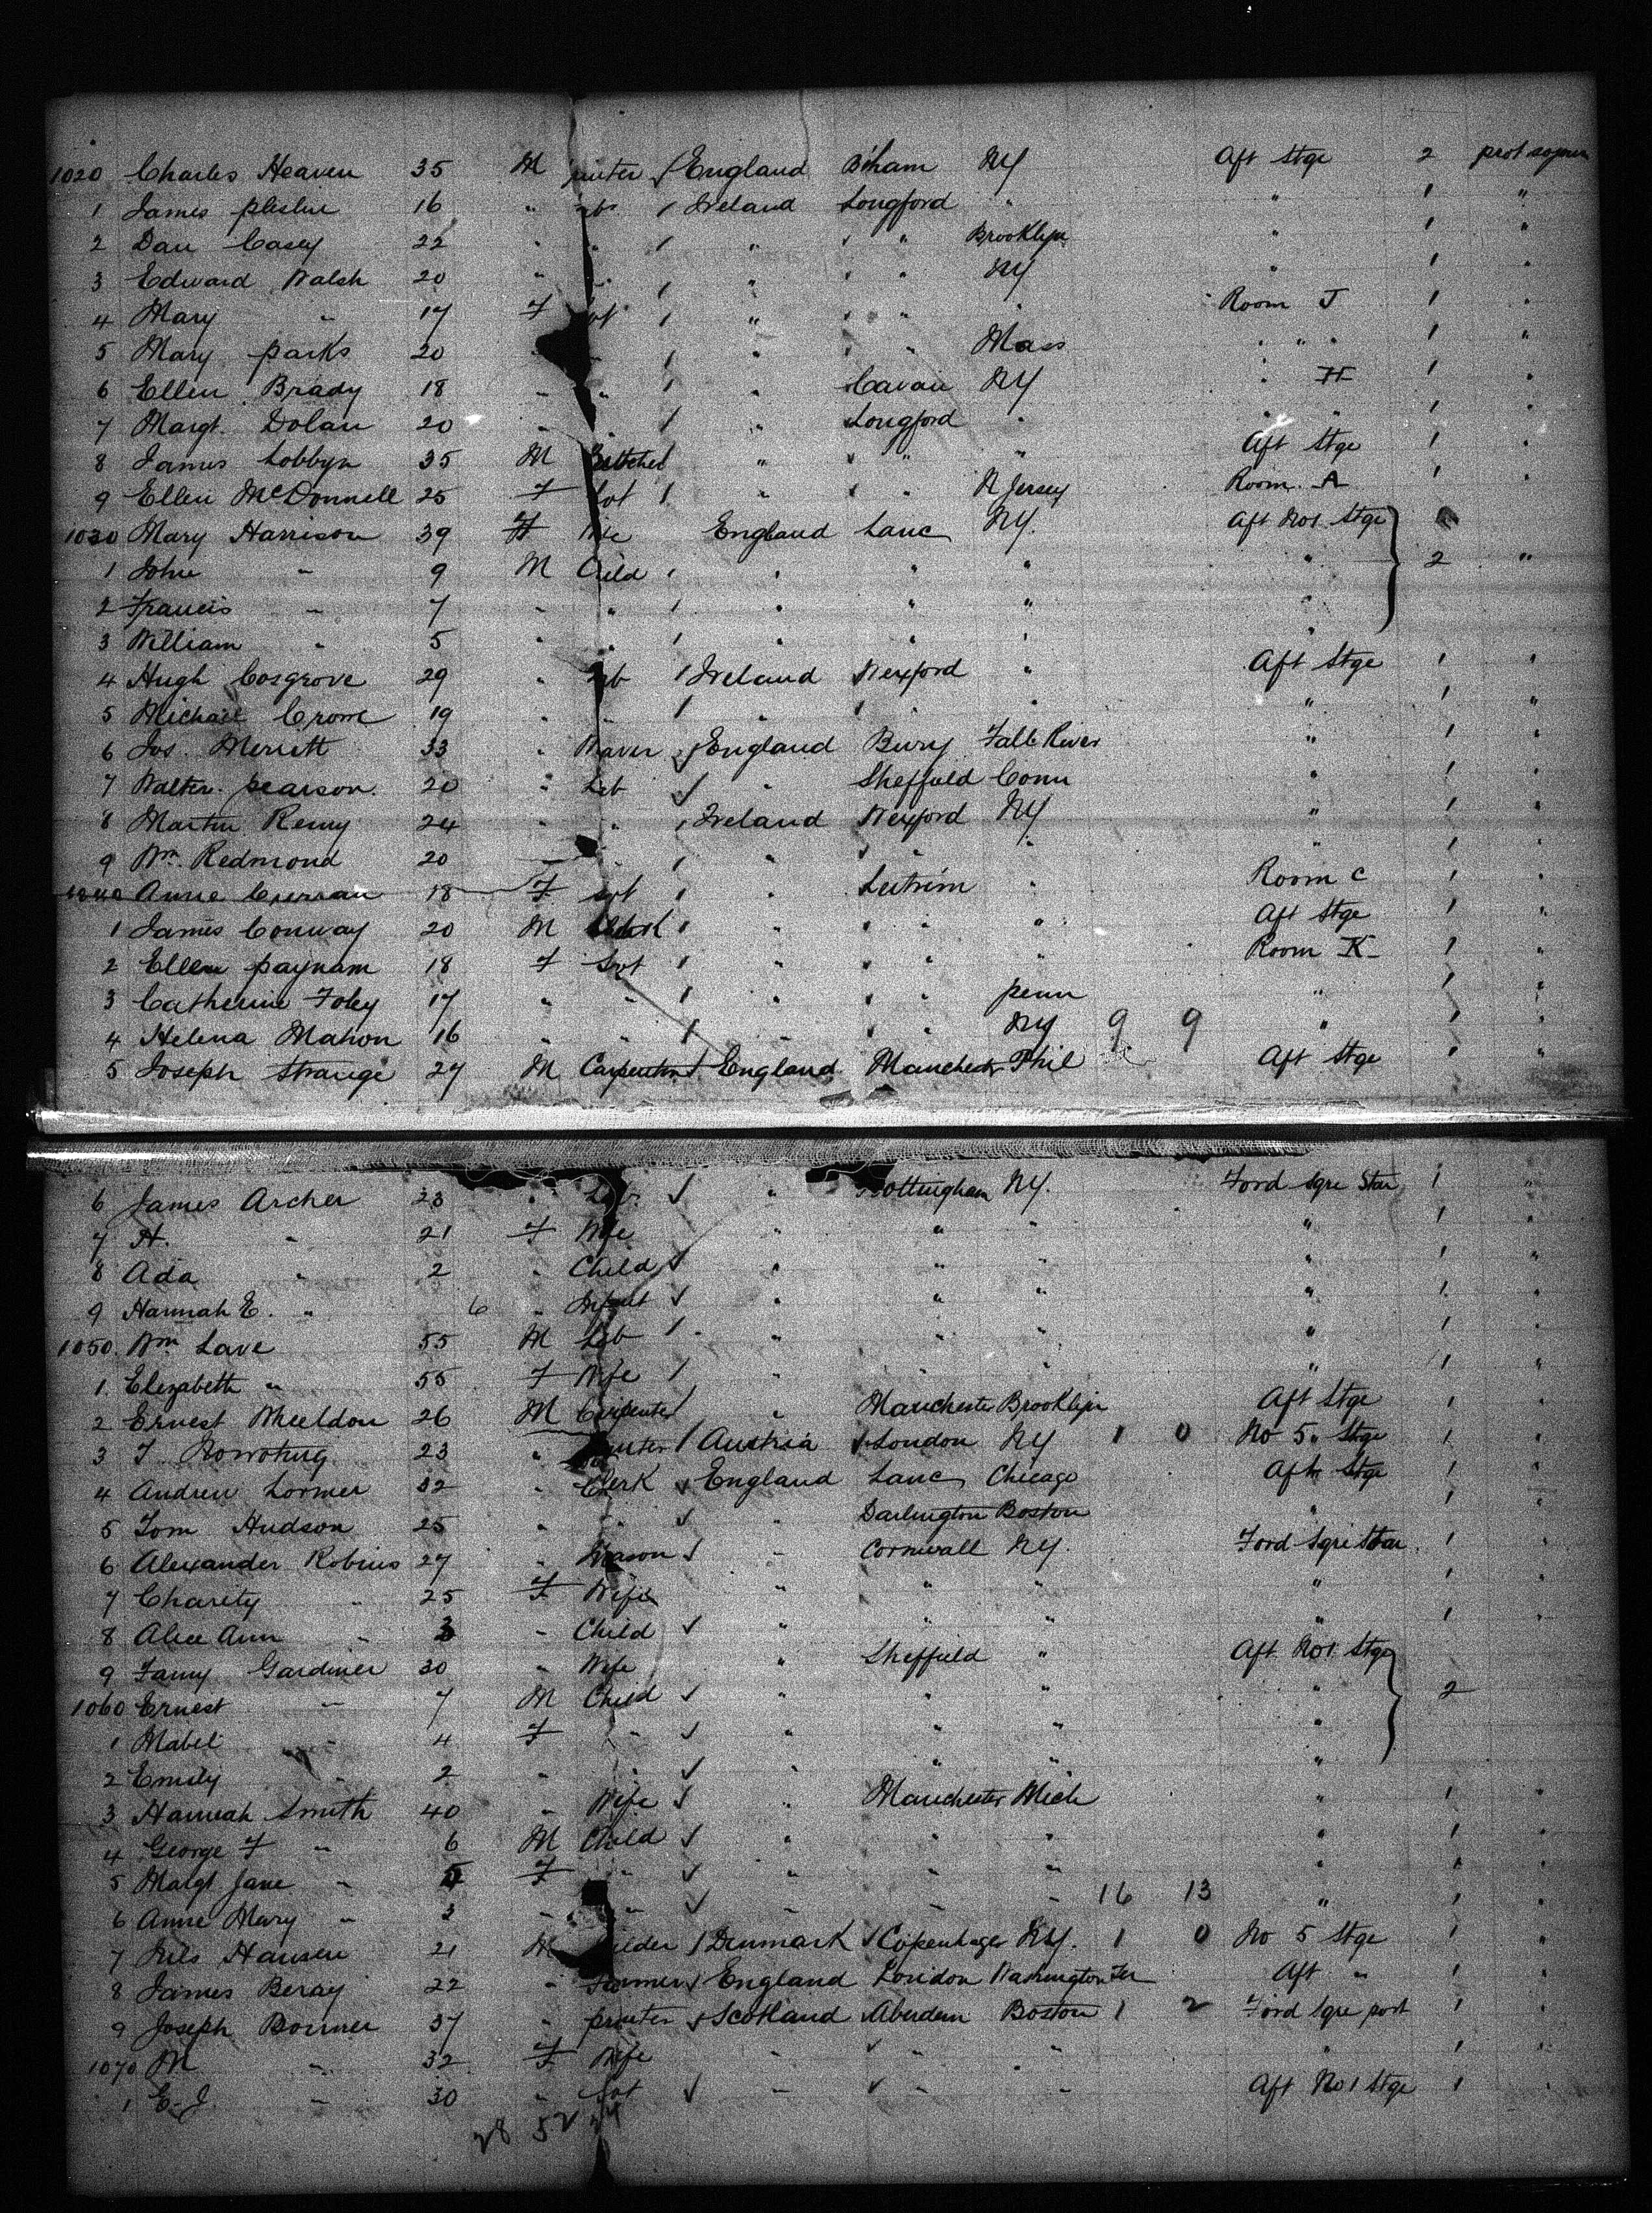 1020 Charles Heaven 35 M England B'ham NY Aft Stge 2 prot sojourn
1 James 16 " 1 Ireland Longford " " 1 "
2 Dan Casey 22 " " 1 " " Brooklyn " 1 "
3 Edward Walsh 20 " " 1 " " NY " 1 "
4 Mary " 17 F 1 " " " Room J 1 "
5 Mary Parks 20 " " 1 " " Mass " " 1 "
6 Ellen Brady 18 " " 1 " Cavan NY " H 1 "
7 Margt. Dolan 20 " " 1 " Longford " " " 1 "
8 James Lobbyn 35 M " " " Aft Stge 1 "
9 Ellen McDonnell 25 F Svt 1 " " N Jersey Room A 1 "
1030 Mary Harrison 39 F England Lanc NY. Aft No1 Stge
1 John " 9 M Child 1 " " " " 2 "
2 Francis " 7 " " 1 " " " "
3 William " 5 " " 1 " " " "
4 Hugh Cosgrove 29 " Lab 1 Ireland Wexford " Aft Stge 1 "
5 Michael Crowe 19 " " 1 " " " " 1 "
6 Jos. Merritt 33 " England Bury Fall River " 1 "
7 Walter Pearson. 20 " Lab " Sheffield Conn " 1 "
8 Martin Kenny 24 " " 1 Ireland Wexford NY " 1 "
9 Wm Redmond 20 " 1 " " " " 1 "
1040 Anne Curran 18 F Svt 1 " Leitrim " Room C 1 "
1 James Conway 20 M 1 " " " Aft Stge 1 "
2 Ellen Paynam 18 F Svt 1 " " " Room K 1 "
3 Catherine Foley 17 " " 1 " " Penn " 1 "
4 Helena Mahon 16 " " 1 " NY 9 9 " 1 "
5 Joseph Strange 27 M Carpenter England Manchestr Phil Aft Stge 1 "
6 James Archer 23 " Lab ✓ " Nottingham NY. Ford Sqre Star 1 "
7 H. " 21 F Wife " " " " 1 "
8 Ada " 2 " Child ✓ " " " " 1 "
9 Hannah E. " 6 " Infant ✓ " " " " 1 "
1050. Wm Lave 55 M Lab 1 " " " " 1 "
1. Elizabeth " 55 F Wife 1 " " " " 1 "
2 Ernest Wheeldon 26 M Carpenter " Manchester Brooklyn Aft Stge 1 "
3 23 " Austria London NY 1 0 No 5 Stge 1 "
4 Andrew Lormer 32 " Clerk ✓ England Lanc Chicago Aft Stge 1 "
5 Tom Hudson 25 " " ✓ " Darlington Boston " 1 "
6 Alexander Robins 27 " Mason ✓ " Cornwall NY. Ford Sqre Star 1 "
7 Charity " 25 F Wife " " " " 1 "
8 Alice Ann " 3 " Child ✓ " " " " 1 "
9 Fanny Gardiner 30 " Wife " Sheffield " Aft No1 Stge
1060 Ernest " 7 M Child ✓ " " " " 2
1 Mabel 4 F " ✓ " " " "
2 Emily " 2 " " ✓ " " " "
3 Hannah Smith 40 " Wife ✓ " Manchester Mich " 1 "
4 George F " 6 M Child ✓ " " " " 1 "
5 Margt Jane " F " ✓ " " " " 1 "
6 Anne Mary " " " ✓ " " " 16 13 " 1 "
7 Nils Hansen 21 M Denmark ✓ Copenhagen NY. 1 0 No 5 Stge 1 "
8 James Beray 22 " England London Washington Ter Aft " 1 "
9 Joseph Bonner 37 " Printer ✓ Scotland Aberdeen Boston 1 2 Ford Sqre port 1 "
1070 M " 32 F Wife " ✓ " " " 1 "
1 E. J. " 30 " Svt ✓ " ✓ " " Aft No 1 Stge 1 "
28 52 24